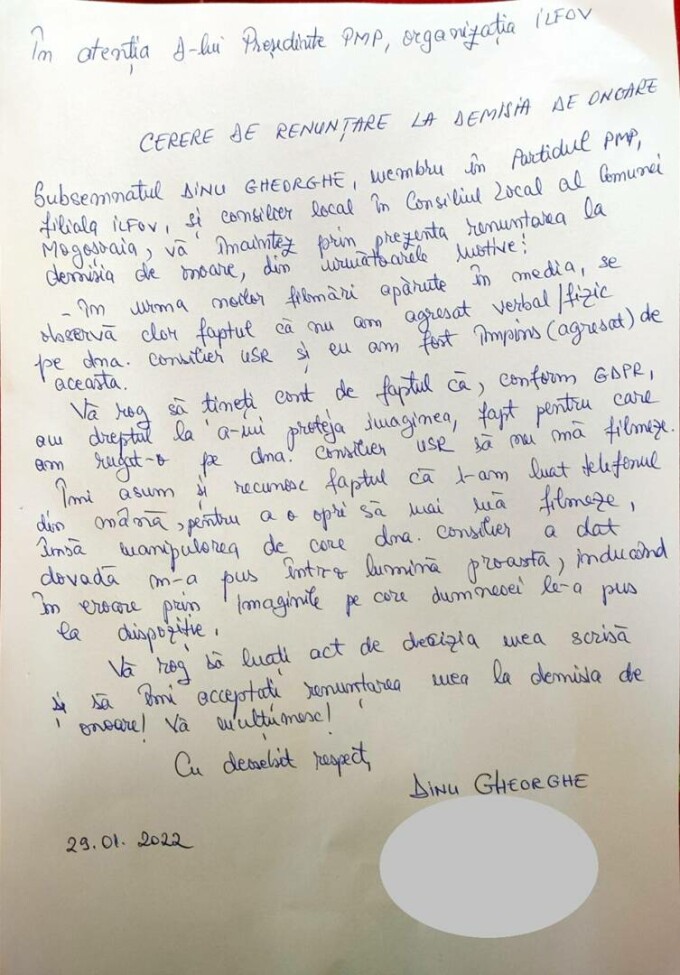 În atenția D-lui Președinte PMP, organizația ILFOV
CERERE DE RENUNȚARE LA DEMISIA DE ONOARE
Subsemnatul DINU GHEORGHE, membru în Partidul PMP,
filiala ILFOV, și consilier local în Consiliul Local al Comunei
Mogosoaia, vă înaintez prin prezenta renuntarea la
demisia de onoare, din următoarele motive:
- În urma noilor filmări apărute în media, se
observă clar faptul că nu am agresat verbal/fizic
pe dna. consilier USR și eu am fost împins (agresat) de
aceasta.
Vă rog să tineți cont de faptul că, conform GDPR,
am dreptul la a-mi proteja imaginea, fapt pentru care
am rugat-o pe dna. consilier USR să nu mă filmeze.
Îmi asum și recunosc faptul că i-am luat telefonul
din mână, pentru a o opri să mai mă filmeze,
însă manipularea de care dna. consilier a dat
dovadă m-a pus într-o lumină proastă, inducând
în eroare prin imaginile pe care dumneaei le-a pus
la dispoziție.
Vă rog să luați act de decizia mea scrisă
și să îmi acceptați renuntarea mea la demisia de
onoare! Vă mulțumesc!
Cu deosebit respect,
DINU GHEORGHE
29.01.2022